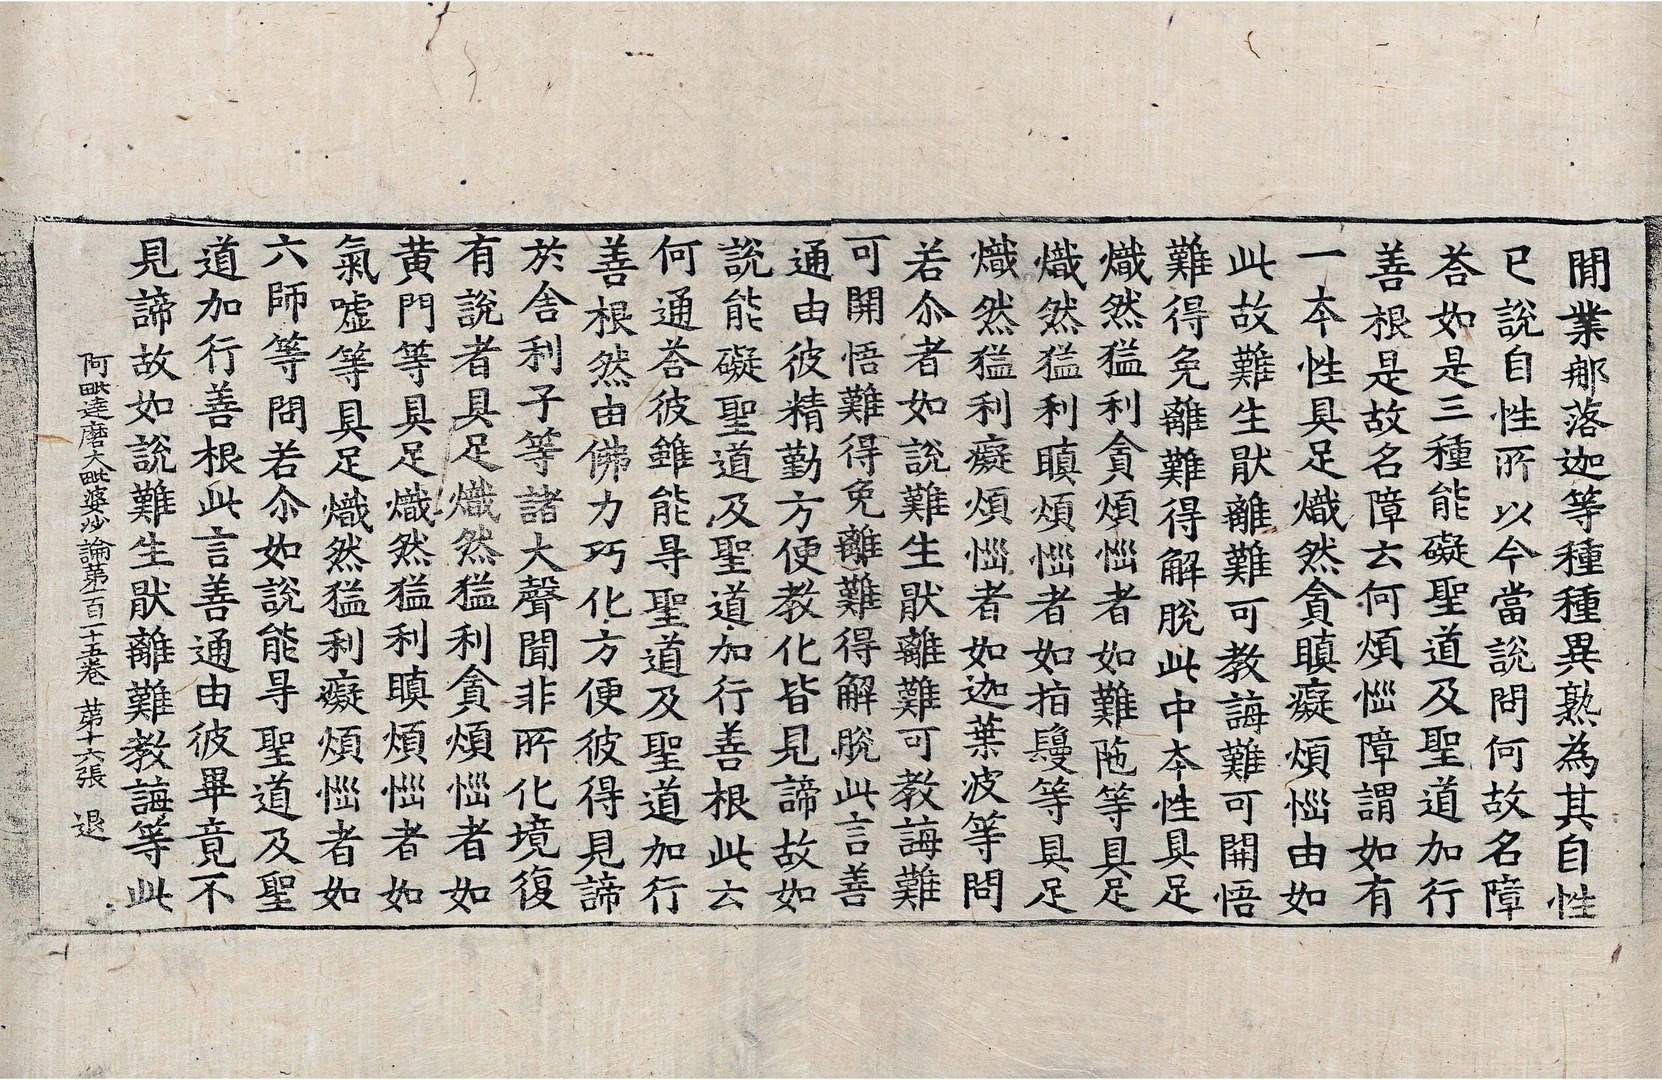 閒業那落迦等種種異熟為其自性
已說自性所以今當說問何故名障
荅如是三種能礙聖道及聖道加行
善根是故名障云何煩惱障謂如有
一本性具足熾然貪瞋癡煩惱由如
此故難生猒離難可教誨難可開悟
難得免離難得解脫此中本性具足
熾然猛利貪煩惱者如難陁等具足
熾然猛利瞋煩惱者如指鬘等具足
熾然猛利癡煩惱者如迦葉波等問
若尒者如說難生猒離難可教誨難
可開悟難得免離難得解脫此言善
通由彼精勤方便教化皆見諦故如
說能礙聖道及聖道加行善根此云
何通荅彼雖能㝵聖道及聖道加行
善根然由佛力巧化方便彼得見諦
於舍利子等諸大聲聞非所化境復
有說者具足熾然猛利貪煩惱者如
黃門等具足熾然猛利瞋煩惱者如
氣噓等具足熾然猛利癡煩惱者如
六師等問若尒如說能㝵聖道及聖
道加行善根此言善通由彼畢竟不
見諦故如說難生猒離難教誨等此
阿毗達磨大毗婆沙論苐一百一十五卷 苐十六張 退